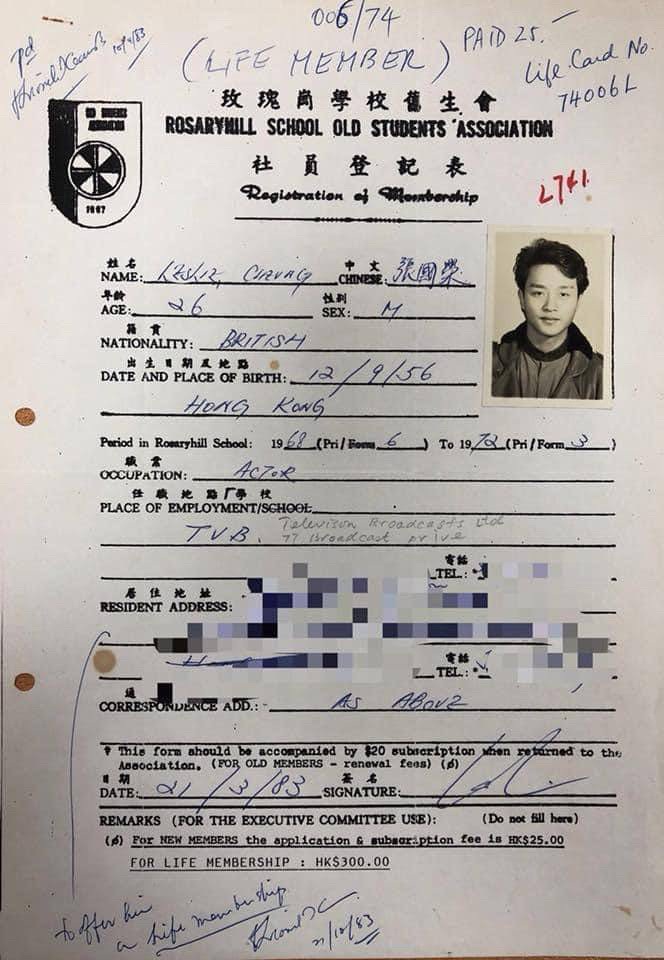 006/74
pd
10/4/83
(LIFE MEMBER)
PAID 25.-
Life Card No.
74006L
OLD STUDENTS
ASSOCIATION
1967
玫瑰崗學校舊生會
ROSARYHILL SCHOOL OLD STUDENTS' ASSOCIATION
社員登記表
Registration of Membership
姓名
NAME: LESLIE, CHEUNG
中文
CHINESE: 張國榮
年齡
AGE: 26
性別
SEX: M
籍貫
NATIONALITY: BRITISH
出生日期及地點
DATE AND PLACE OF BIRTH: 12/9/56
HONG KONG
Period in Rosaryhill School: 1968 (Pri/Form 6 ) To 1972 (Pri/Form 3 )
職業
OCCUPATION: ACTOR
任職地點/學校
PLACE OF EMPLOYMENT/SCHOOL
TVB. Televison Broadcasts Ltd
77 Broadcast prive
電話
TEL.:
居住地址
RESIDENT ADDRESS:
電話
TEL.:
通
CORRESPONDENCE ADD.: AS ABOVE
* This form should be accompanied by $20 subscription when returned to the
Association. (FOR OLD MEMBERS - renewal fees) (ø)
日期
DATE: 21/3/83
簽名
SIGNATURE:
REMARKS (FOR THE EXECUTIVE COMMITTEE USE): (Do not fill here)
(ø) For NEW MEMBERS the application & subscription fee is HK$25.00
FOR LIFE MEMBERSHIP : HK$300.00
to offer him
a Life membership
21/10/83